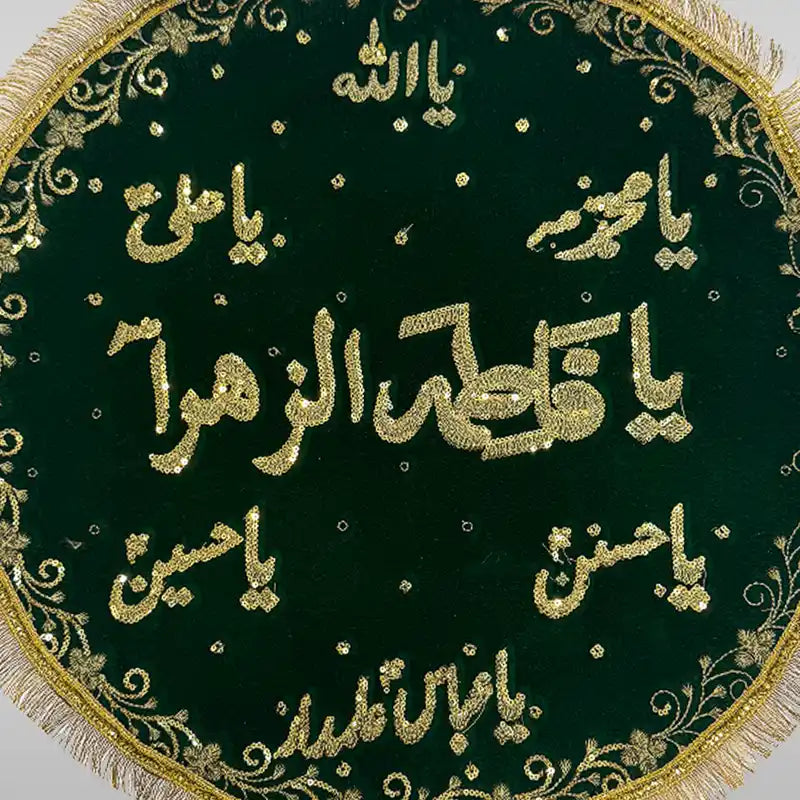 یا الله
یا محمد یا علی
یا فاطمة الزهراء
یا حسن یا حسین
یا عباس علمدار